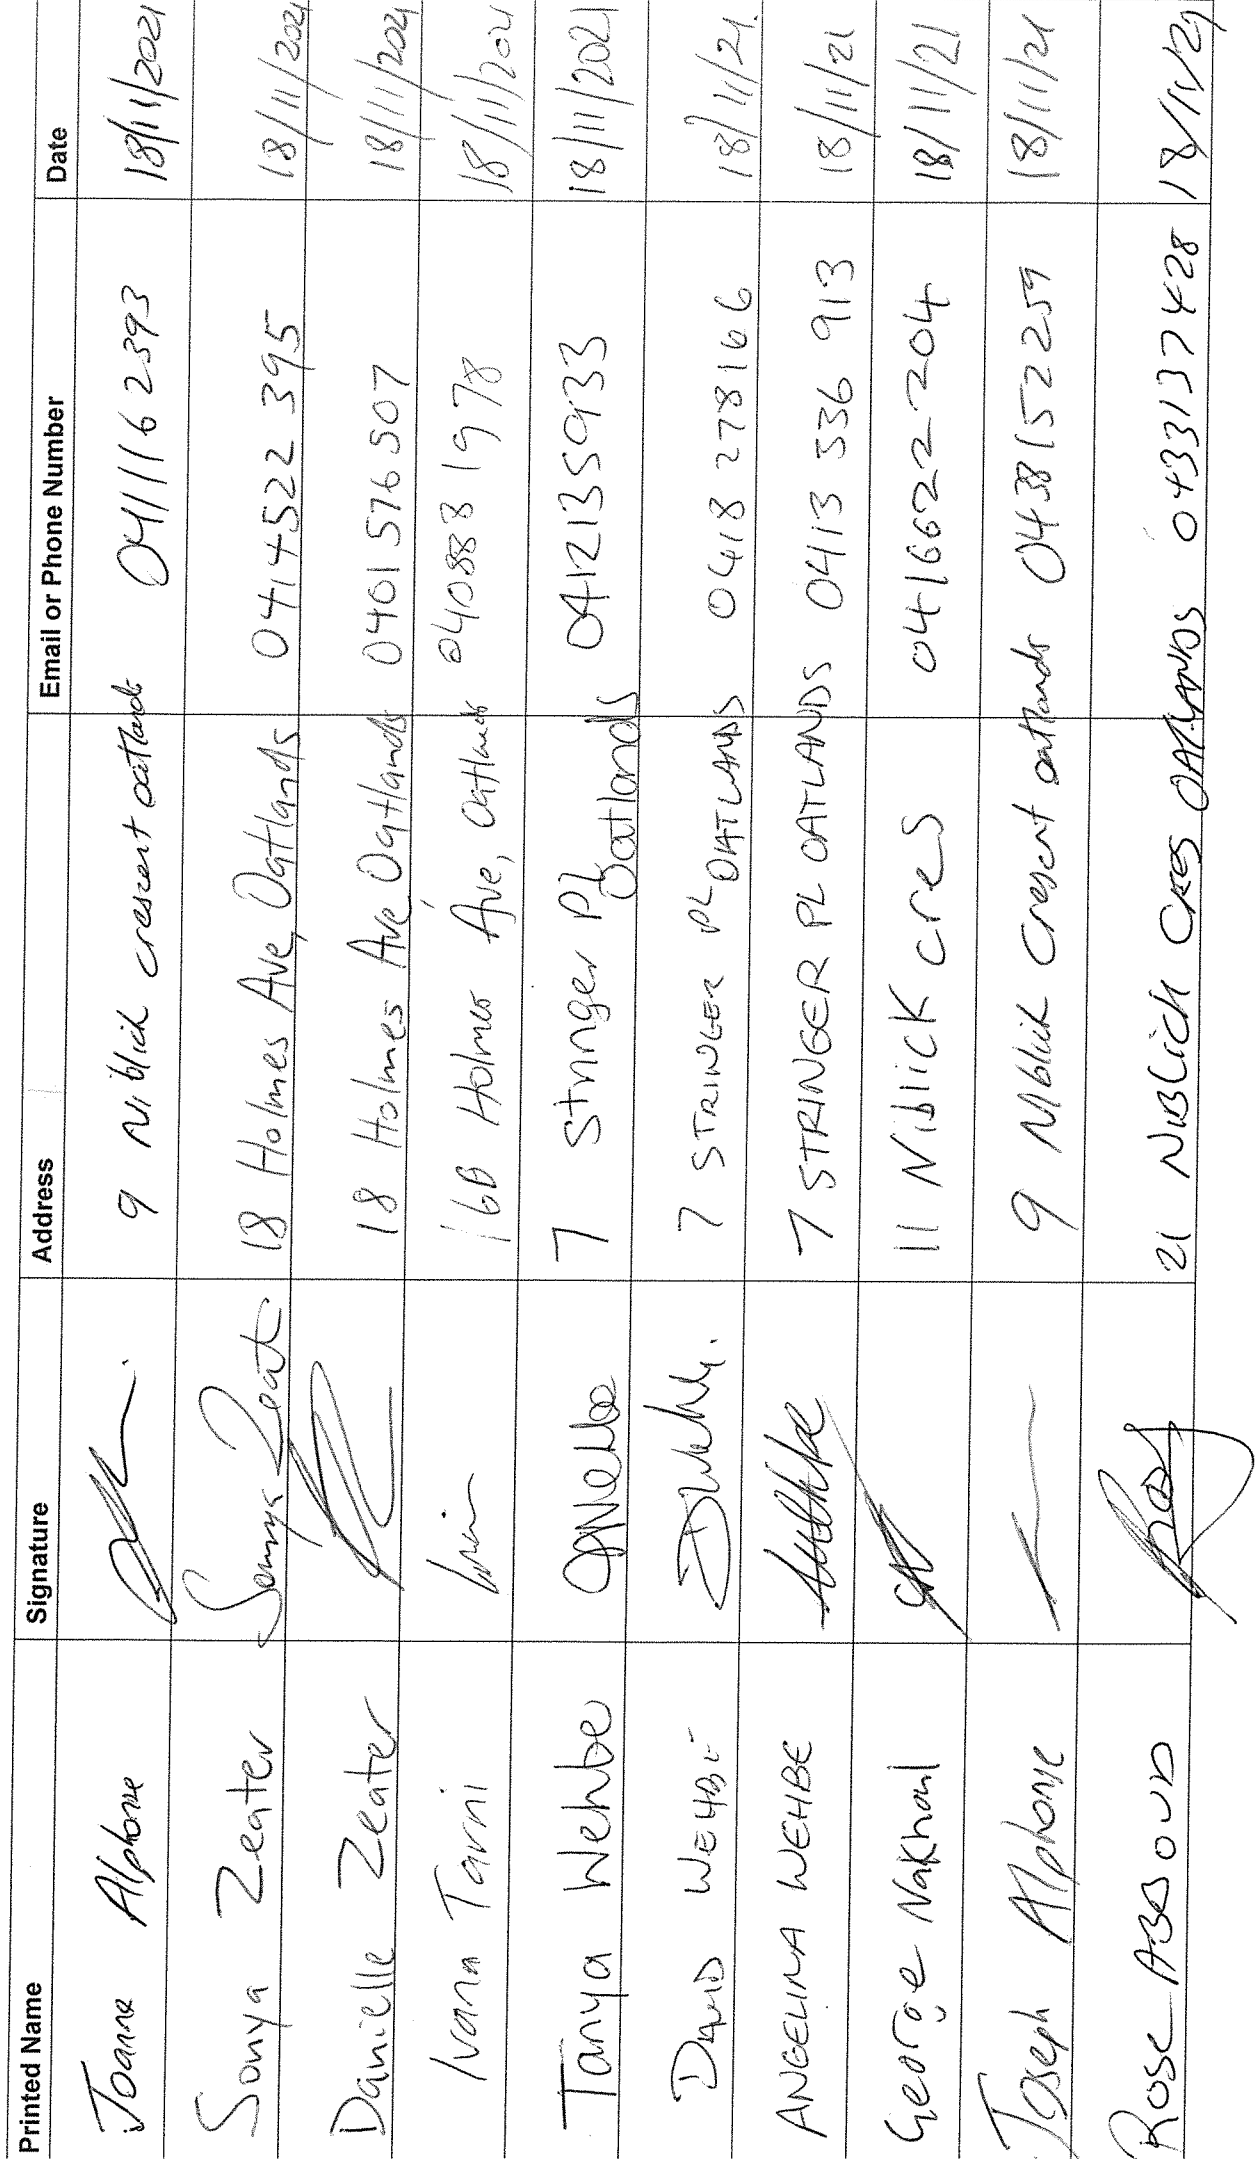 Printed Name Signature Address Email or Phone Number Date
Joanne Alphonse 9 Niblick crescent oatlands 0411162393 18/11/2021
Sonya Zeater Sonya Zeater 18 Holmes Ave, Oatlands 0414522 395 18/11/2021
Danielle Zeater 18 Holmes Ave Oatlands 0401576507 18/11/2021
Ivana Tanni 16B Holmes Ave, Oatlands 040883 1978 18/11/2021
Tanya Wehbe 7 Stringer Pl Oatlands 0412135933 18/11/2021
David WEHBE 7 STRINGER PL OATLANDS 0418 278166 18/11/21.
ANGELINA WEHBE 7 STRINGER PL OATLANDS 0413 336 913 18/11/21
George Nakhoul 11 Niblick cres 0416622204 18/11/21
Joseph Alphonse 9 Niblick Crescent oatlands 0438152259 18/11/21
ROSE ABBOUD 21 NIBLICK CRES OATLANDS 0433137428 18/11/21